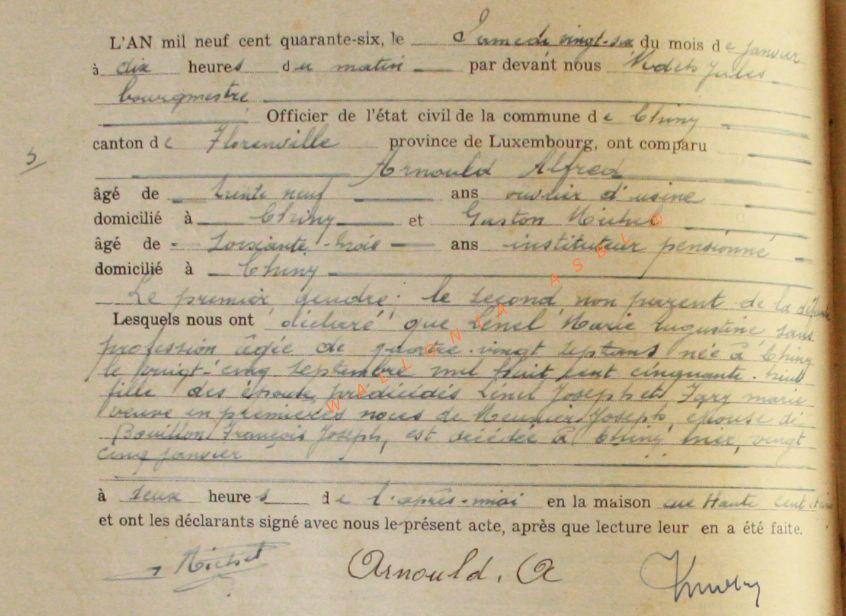 L'AN mil neuf cent quarante-six, le Samedi vingt-six du mois de janvier
à dix heures du matin par devant nous Jules
bourgmestre
Officier de l'état civil de la commune de Chiny
canton de Florenville province de Luxembourg, ont comparu
5
Arnould Alfred
âgé de trente neuf ans ouvrier d'usine
domicilié à Chiny et Gaston Michel
âgé de soixante-trois ans instituteur pensionné
domicilié à Chiny
Le premier gendre; le second non parent de la défunte
Lesquels nous ont déclaré que Marie Augustine sans
profession âgée de quatre-vingt sept ans née à Chiny
le vingt-cinq septembre mil huit cent cinquante-huit
fille des époux prédécédés Joseph et Marie
veuve en premières noces de Meunier Joseph, épouse de
Bouillon François Joseph, est décédée à Chiny, hier, vingt
cinq janvier
à deux heures de l'après-midi en la maison rue Haute cent
et ont les déclarants signé avec nous le présent acte, après que lecture leur en a été faite.
Michel Arnould, A
WALLONIA ASBL ©